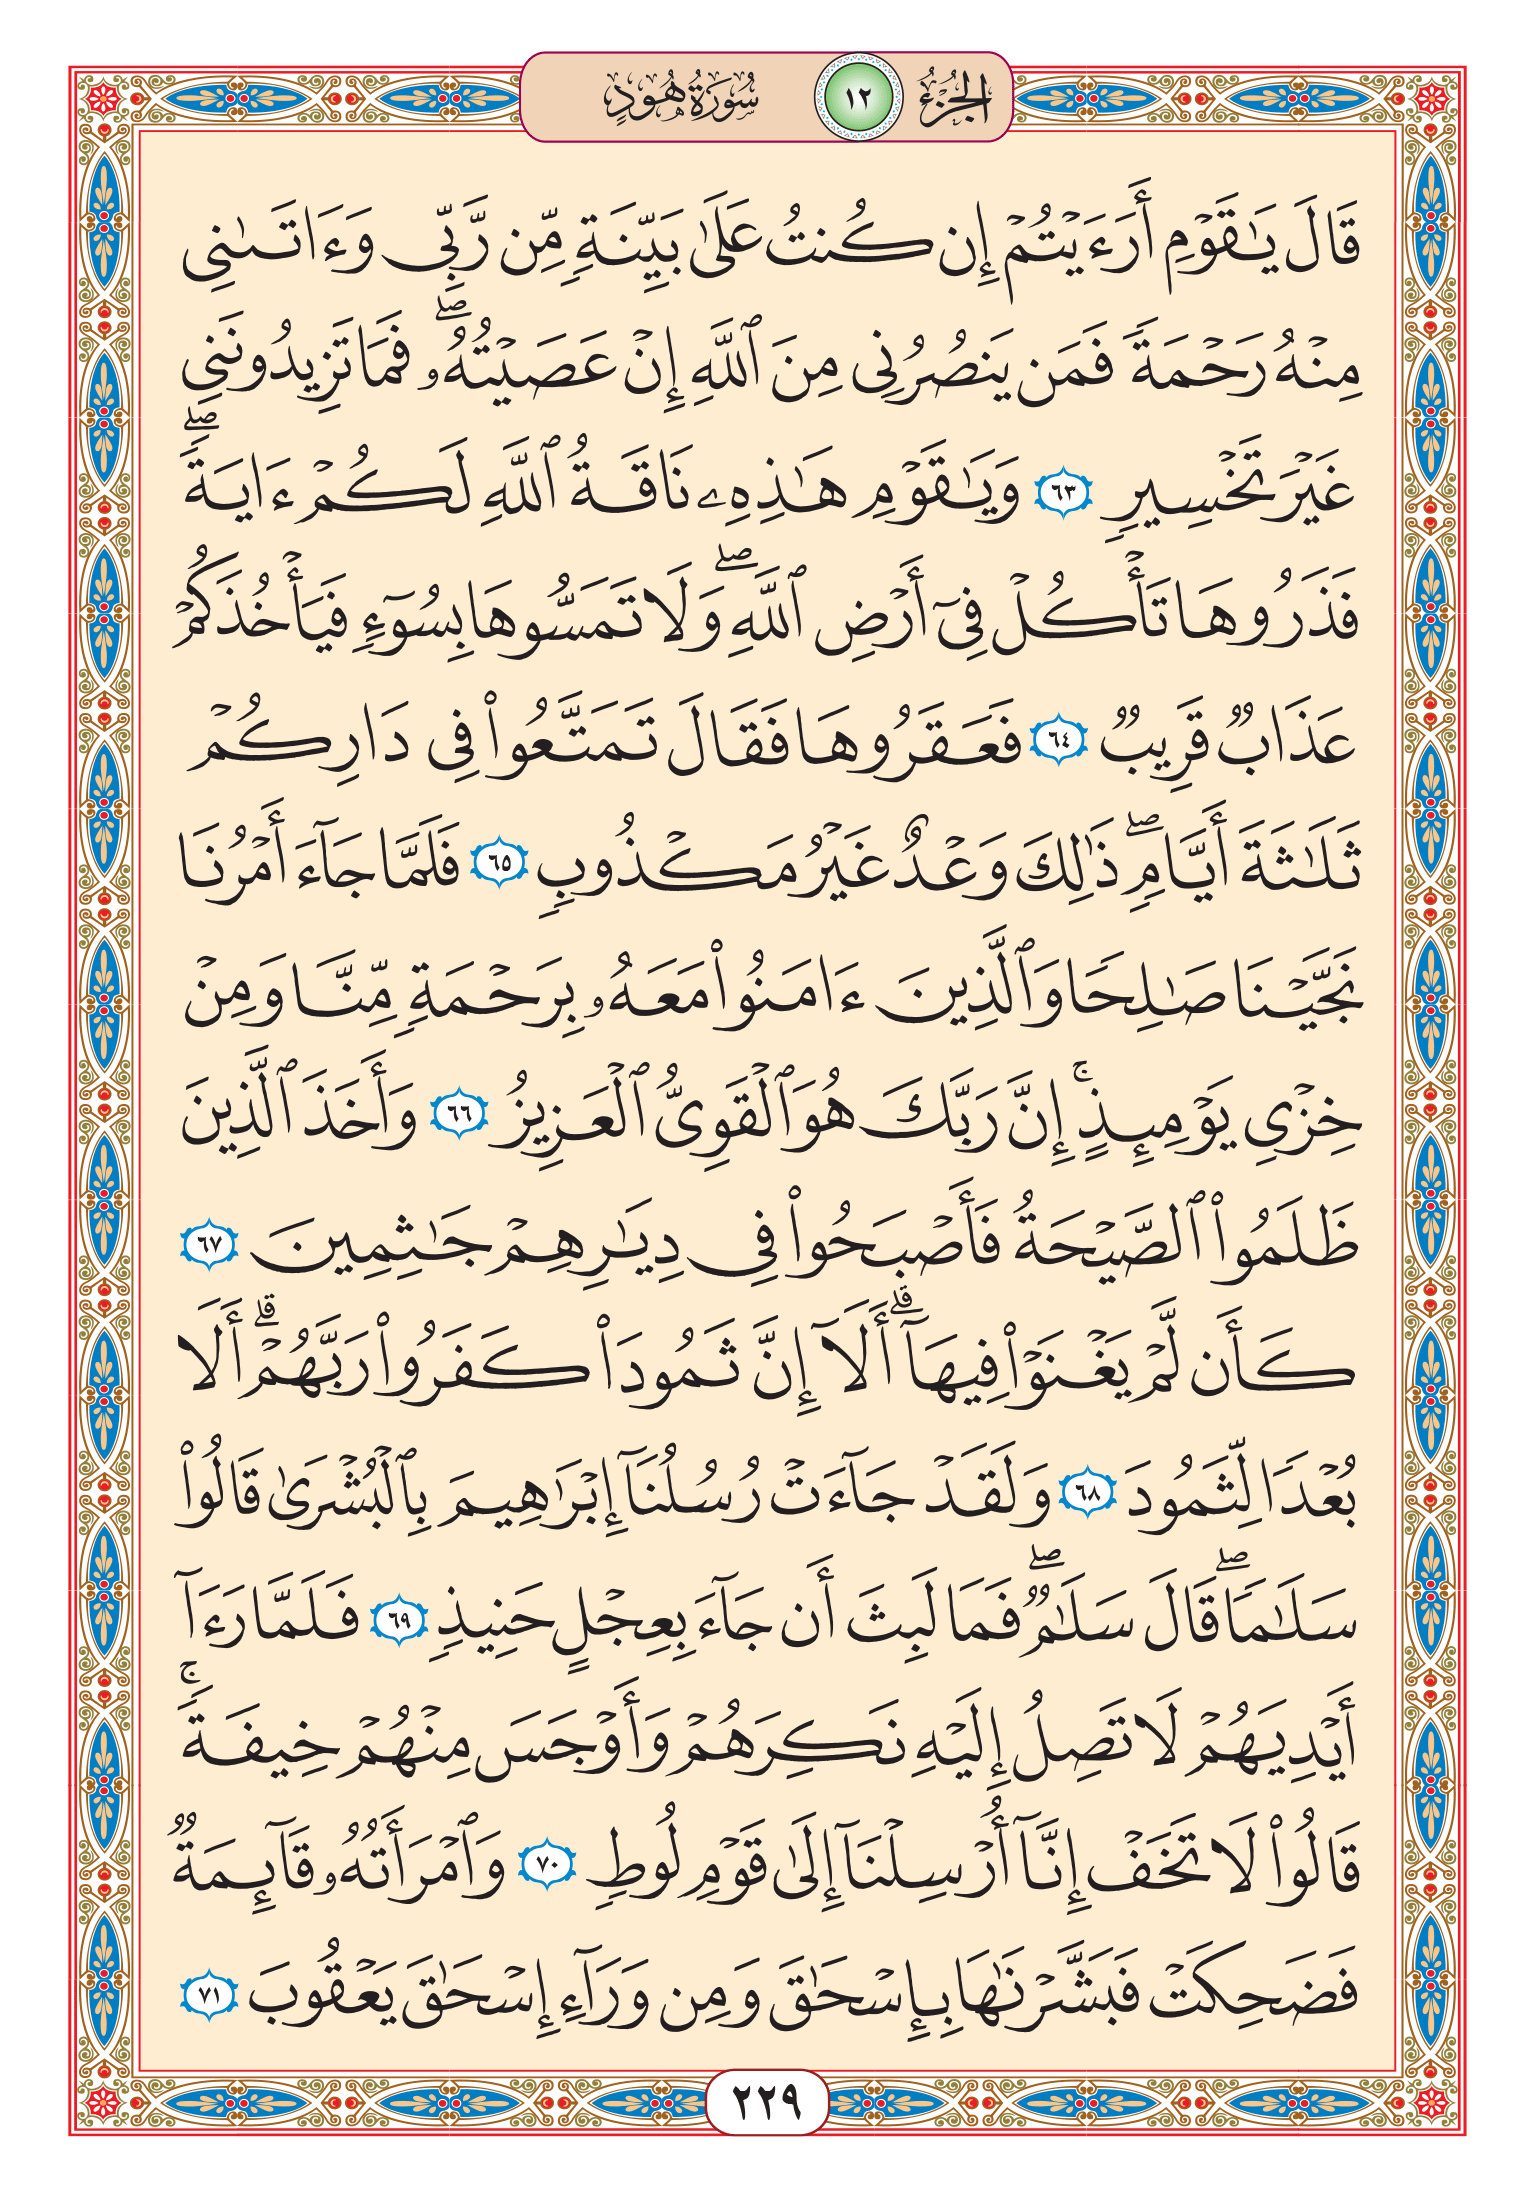 الجُزْءُ ١٢ سُورَةُ هُودٍ
قَالَ يَٰقَوْمِ أَرَءَيْتُمْ إِن كُنتُ عَلَىٰ بَيِّنَةٍ مِّن رَّبِّى وَءَاتَىٰنِى
مِنْهُ رَحْمَةً فَمَن يَنصُرُنِى مِنَ ٱللَّهِ إِنْ عَصَيْتُهُۥ ۖ فَمَا تَزِيدُونَنِى
غَيْرَ تَخْسِيرٍ ٦٣ وَيَٰقَوْمِ هَٰذِهِۦ نَاقَةُ ٱللَّهِ لَكُمْ ءَايَةً ۖ
فَذَرُوهَا تَأْكُلْ فِىٓ أَرْضِ ٱللَّهِ ۖ وَلَا تَمَسُّوهَا بِسُوٓءٍ فَيَأْخُذَكُمْ
عَذَابٌ قَرِيبٌ ٦٤ فَعَقَرُوهَا فَقَالَ تَمَتَّعُوا۟ فِى دَارِكُمْ
ثَلَٰثَةَ أَيَّامٍ ۖ ذَٰلِكَ وَعْدٌ غَيْرُ مَكْذُوبٍ ٦٥ فَلَمَّا جَآءَ أَمْرُنَا
نَجَّيْنَا صَٰلِحًا وَٱلَّذِينَ ءَامَنُوا۟ مَعَهُۥ بِرَحْمَةٍ مِّنَّا وَمِنْ
خِزْىِ يَوْمِئِذٍ ۚ إِنَّ رَبَّكَ هُوَ ٱلْقَوِىُّ ٱلْعَزِيزُ ٦٦ وَأَخَذَ ٱلَّذِينَ
ظَلَمُوا۟ ٱلصَّيْحَةُ فَأَصْبَحُوا۟ فِى دِيَٰرِهِمْ جَٰثِمِينَ ٦٧
كَأَن لَّمْ يَغْنَوْا۟ فِيهَآ ۗ أَلَآ إِنَّ ثَمُودَا۟ كَفَرُوا۟ رَبَّهُمْ ۗ أَلَا
بُعْدًا لِّثَمُودَ ٦٨ وَلَقَدْ جَآءَتْ رُسُلُنَآ إِبْرَٰهِيمَ بِٱلْبُشْرَىٰ قَالُوا۟
سَلَٰمًا ۖ قَالَ سَلَٰمٌ ۖ فَمَا لَبِثَ أَن جَآءَ بِعِجْلٍ حَنِيذٍ ٦٩ فَلَمَّا رَءَآ
أَيْدِيَهُمْ لَا تَصِلُ إِلَيْهِ نَكِرَهُمْ وَأَوْجَسَ مِنْهُمْ خِيفَةً ۚ
قَالُوا۟ لَا تَخَفْ إِنَّآ أُرْسِلْنَآ إِلَىٰ قَوْمِ لُوطٍ ٧٠ وَٱمْرَأَتُهُۥ قَآئِمَةٌ
فَضَحِكَتْ فَبَشَّرْنَٰهَا بِإِسْحَٰقَ وَمِن وَرَآءِ إِسْحَٰقَ يَعْقُوبَ ٧١
٢٢٩